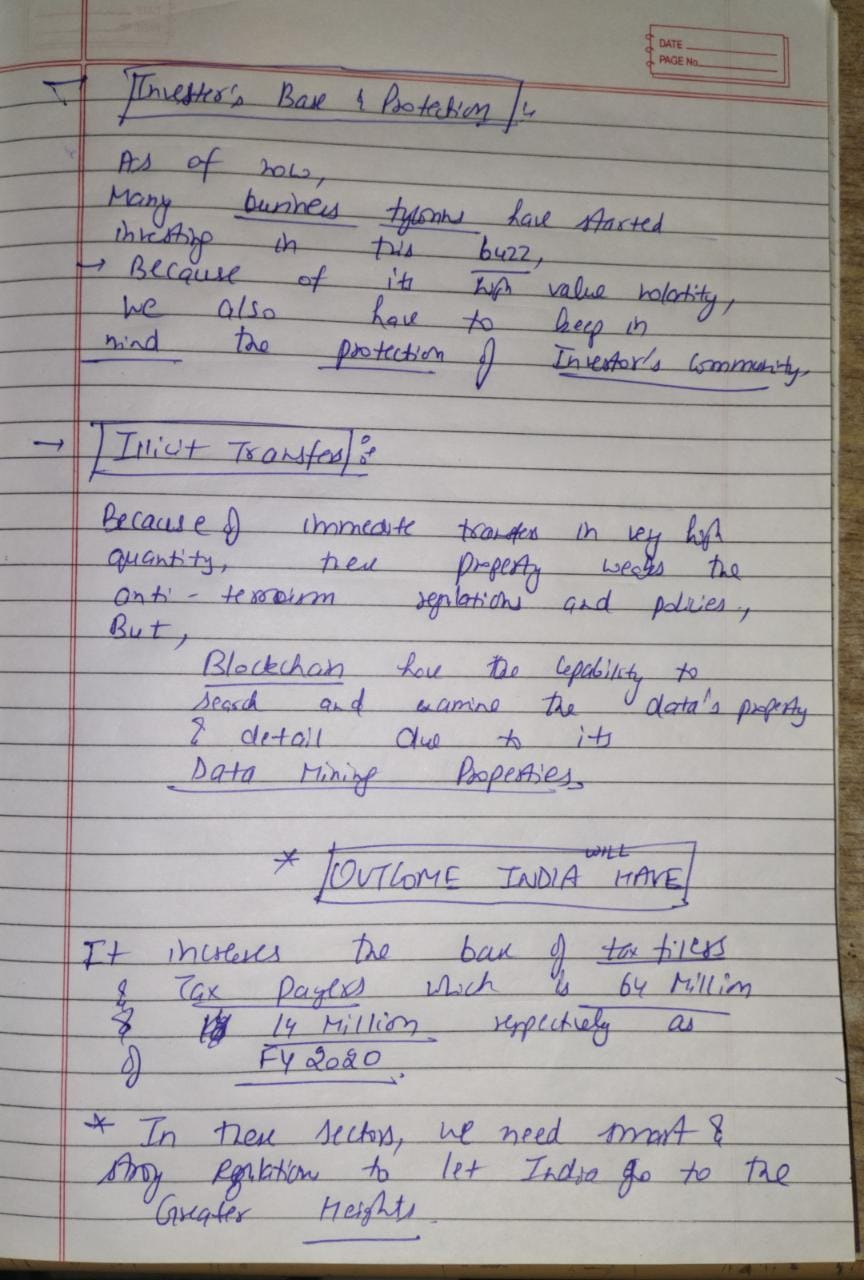 DATE
PAGE No.
Invester's Base & Protection
As of now,
Many business tycoons have started
investing in this buzz,
→ Because of its high value volatity,
we also have to keep in
mind the protection of Investor's Community.
→ Illicit Transfer :
Because of immediate transfer in very high
quantity, these property weaks the
anti-terrorism regulations and policies,
But,
Blockchain have the capability to
search and examine the data's property
& detail due to its
Data Mining Properties.
* OUTCOME INDIA WILL HAVE
It increses the base of tax filers
& Tax payers which is 64 Million
& 14 Million respectively as
of FY 2020.
* In these sectors, we need smart &
strong regulation to let India go to the
Greater Heights.